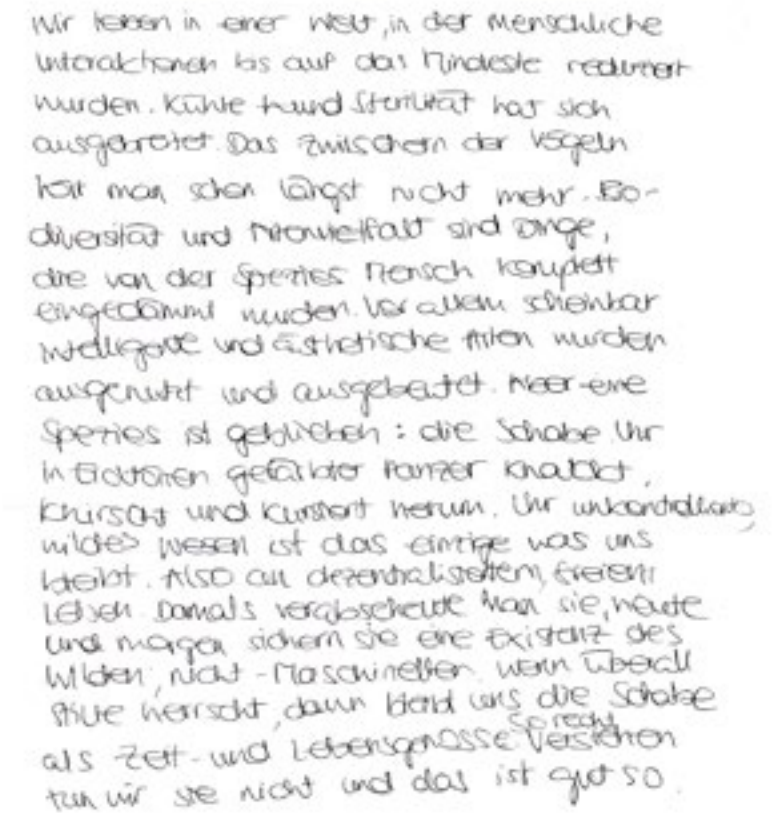 Wir leben in einer Welt, in der menschliche
Interaktionen bis auf das Mindeste reduziert
wurden. Kühle und Sterilität hat sich
ausgebreitet. Das Zwitschern der Vögeln
hört man schon längst nicht mehr. Bio-
diversität und Artenvielfalt sind Dinge,
die von der Spezies Mensch komplett
eingedämmt wurden. Vor allem scheinbar
intelligente und ästhetische Arten wurden
ausgenutzt und ausgebeutet. Aber eine
Spezies ist geblieben: die Schabe. Ihr
in Erdtönen gefärbter Panzer knackt,
knirscht und knistert herum. Ihr unkontrollierbares,
wildes Wesen ist das einzige was uns
bleibt. Also an dezentralisiertem, freiem
Leben. Damals verabscheute man sie, heute
und morgen sichern sie eine Existenz des
Wilden, nicht-Maschinellen. Wenn überall
Stille herrscht, dann bleibt uns die Schabe
als Zeit- und Lebensgenosse. So recht verstehen
tun wir sie nicht und das ist gut so.